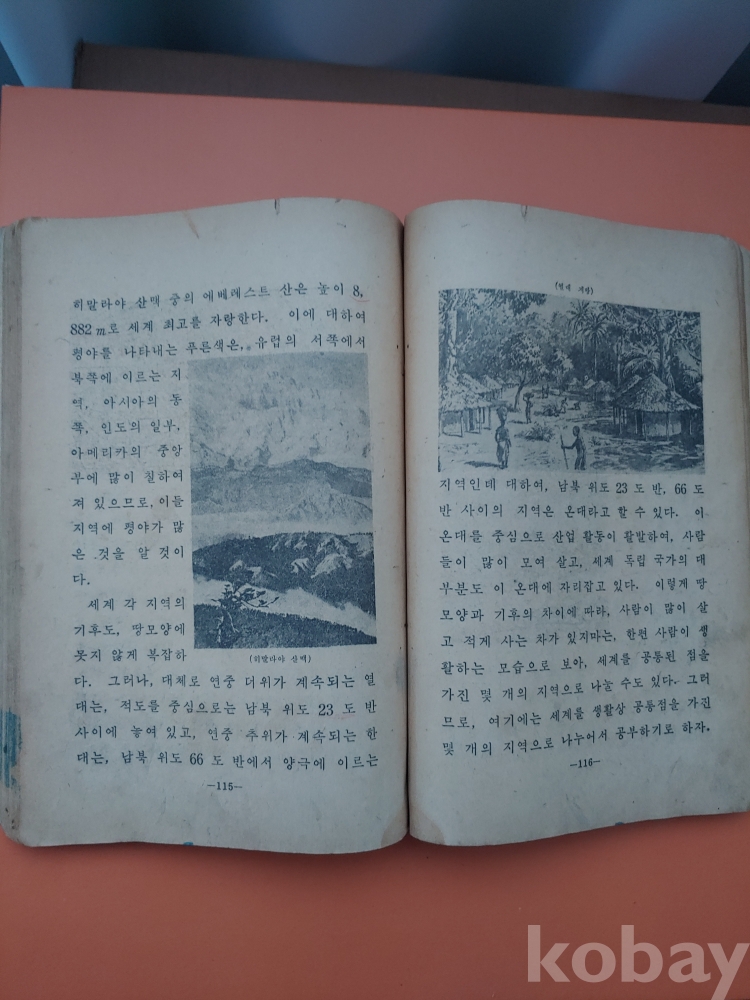 히말라야 산맥 중의 에베레스트 산은 높이 8,
882m로 세계 최고를 자랑한다. 이에 대하여
평야를 나타내는 푸른색은, 유럽의 서쪽에서
북쪽에 이르는 지
역, 아시아의 동
쪽, 인도의 일부,
아메리카의 중앙
부에 많이 칠하여
져 있으므로, 이들
지역에 평야가 많
은 것을 알 것이
다.
세계 각 지역의
기후도, 땅모양에
못지 않게 복잡하
(히말라야 산맥)
다. 그러나, 대체로 연중 더위가 계속되는 열
대는, 적도를 중심으로는 남북 위도 23 도 반
사이에 놓여 있고, 연중 추위가 계속되는 한
대는, 남북 위도 66 도 반에서 양극에 이르는
—115—
(열대 지방)
지역인데 대하여, 남북 위도 23 도 반, 66 도
반 사이의 지역은 온대라고 할 수 있다. 이
온대를 중심으로 산업 활동이 활발하여, 사람
들이 많이 모여 살고, 세계 독립 국가의 대
부분도 이 온대에 자리잡고 있다. 이렇게 땅
모양과 기후의 차이에 따라, 사람이 많이 살
고 적게 사는 차가 있지마는, 한편 사람이 생
활하는 모습으로 보아, 세계를 공통된 점을
가진 몇 개의 지역으로 나눌 수도 있다. 그러
므로, 여기에는 세계를 생활상 공통점을 가진
몇 개의 지역으로 나누어서 공부하기로 하자.
—116—
kobay